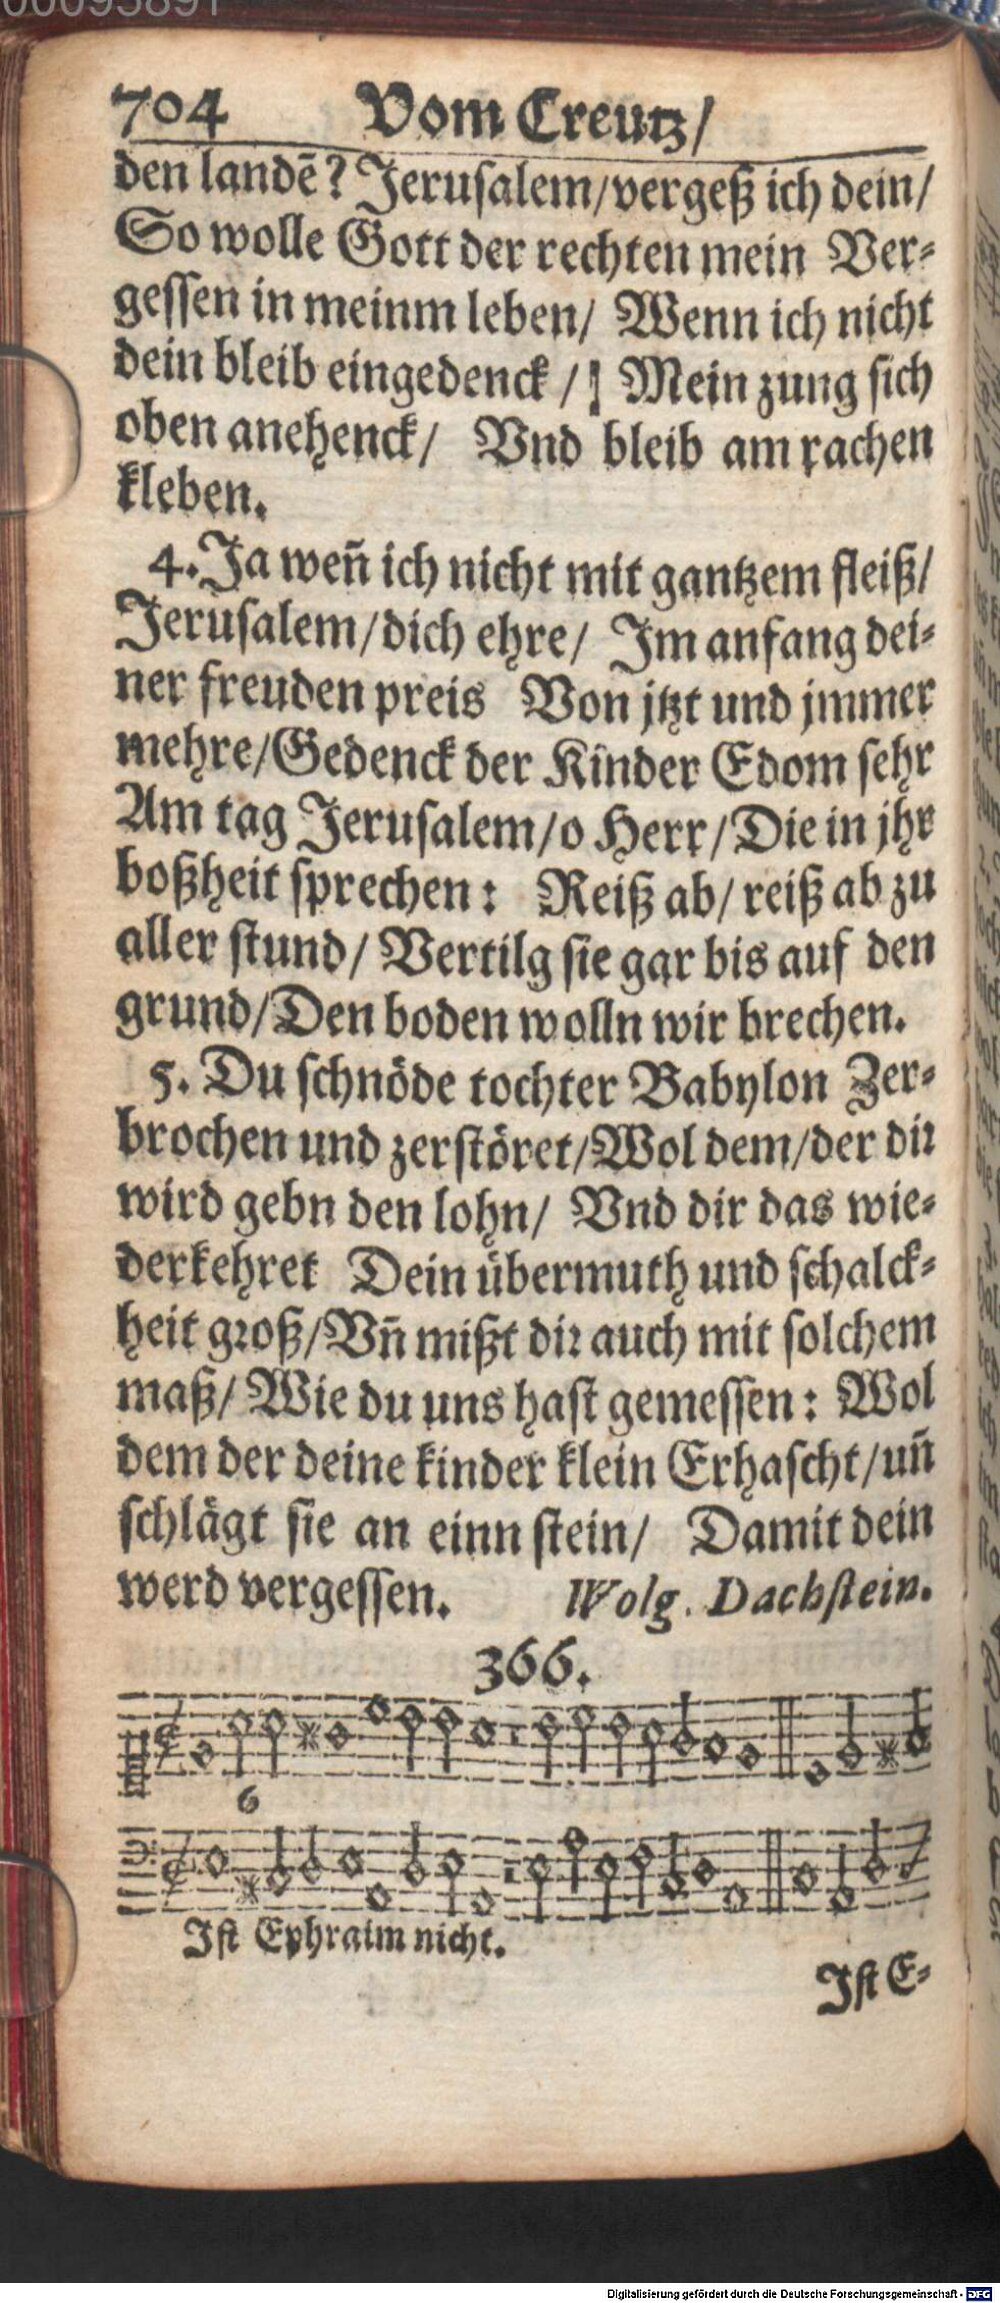 00093891
704 Vom Creutz/
den landē? Jerusalem/vergeß ich dein/
So wolle Gott der rechten mein Ver-
gessen in meinm leben/ Wenn ich nicht
dein bleib eingedenck / Mein zung sich
oben anehenck/ Vnd bleib am rachen
kleben.
4. Ja weñ ich nicht mit gantzem fleiß/
Jerusalem/dich ehre/ Im anfang dei-
ner freuden preis Von jtzt und jmmer
mehre/Gedenck der Kinder Edom sehr
Am tag Jerusalem/o Herr/Die in jhr
boßheit sprechen: Reiß ab/ reiß ab zu
aller stund/ Vertilg sie gar bis auf den
grund/Den boden wolln wir brechen.
5. Du schnöde tochter Babylon Zer-
brochen und zerstöret/Wol dem/der dir
wird gebn den lohn/ Vnd dir das wie-
derkehret Dein übermuth und schalck-
heit groß/Vñ mißt dir auch mit solchem
maß/ Wie du uns hast gemessen: Wol
dem der deine kinder klein Erhascht/uñ
schlägt sie an einn stein/ Damit dein
werd vergessen. Wolg. Dachstein.
366.
6
Ist Ephraim nicht.
Ist E-
Digitalisierung gefördert durch die Deutsche Forschungsgemeinschaft - DFG